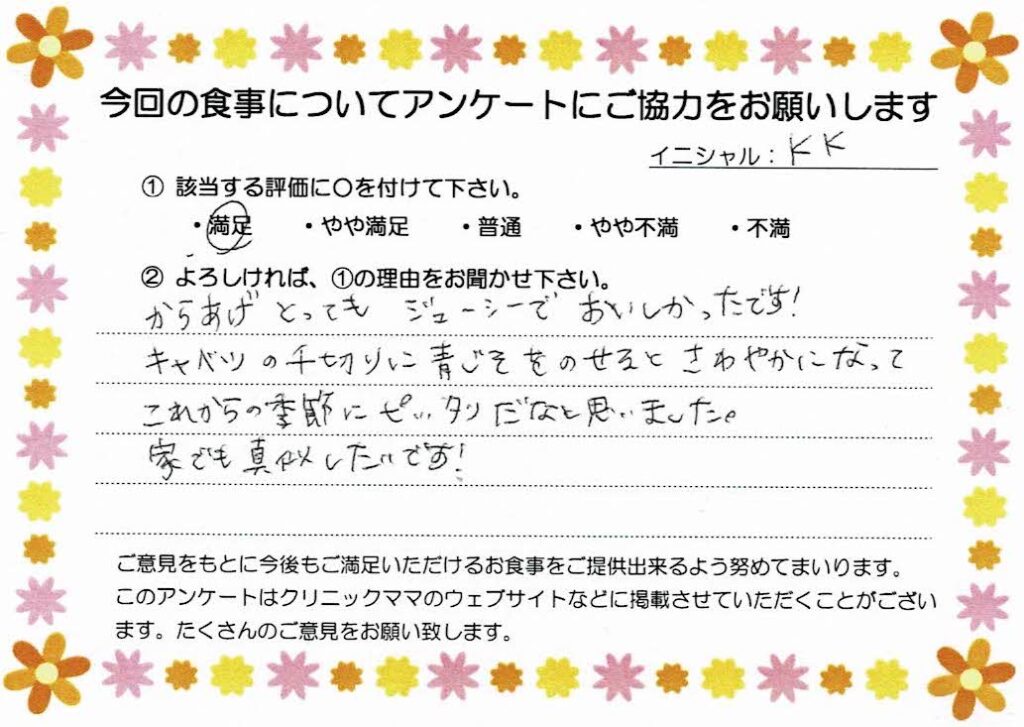 今回の食事についてアンケートにご協力をお願いします
イニシャル：KK
① 該当する評価に〇を付けて下さい。
・満足 ・やや満足 ・普通 ・やや不満 ・不満
② よろしければ、①の理由をお聞かせ下さい。
からあげ とっても ジューシーで おいしかったです!
キャベツの千切りに青じそをのせるとさわやかになって
これからの季節にピッタリだなと思いました。
家でも真似したいです!
ご意見をもとに今後もご満足いただけるお食事をご提供出来るよう努めてまいります。
このアンケートはクリニックママのウェブサイトなどに掲載させていただくことがござい
ます。たくさんのご意見をお願い致します。